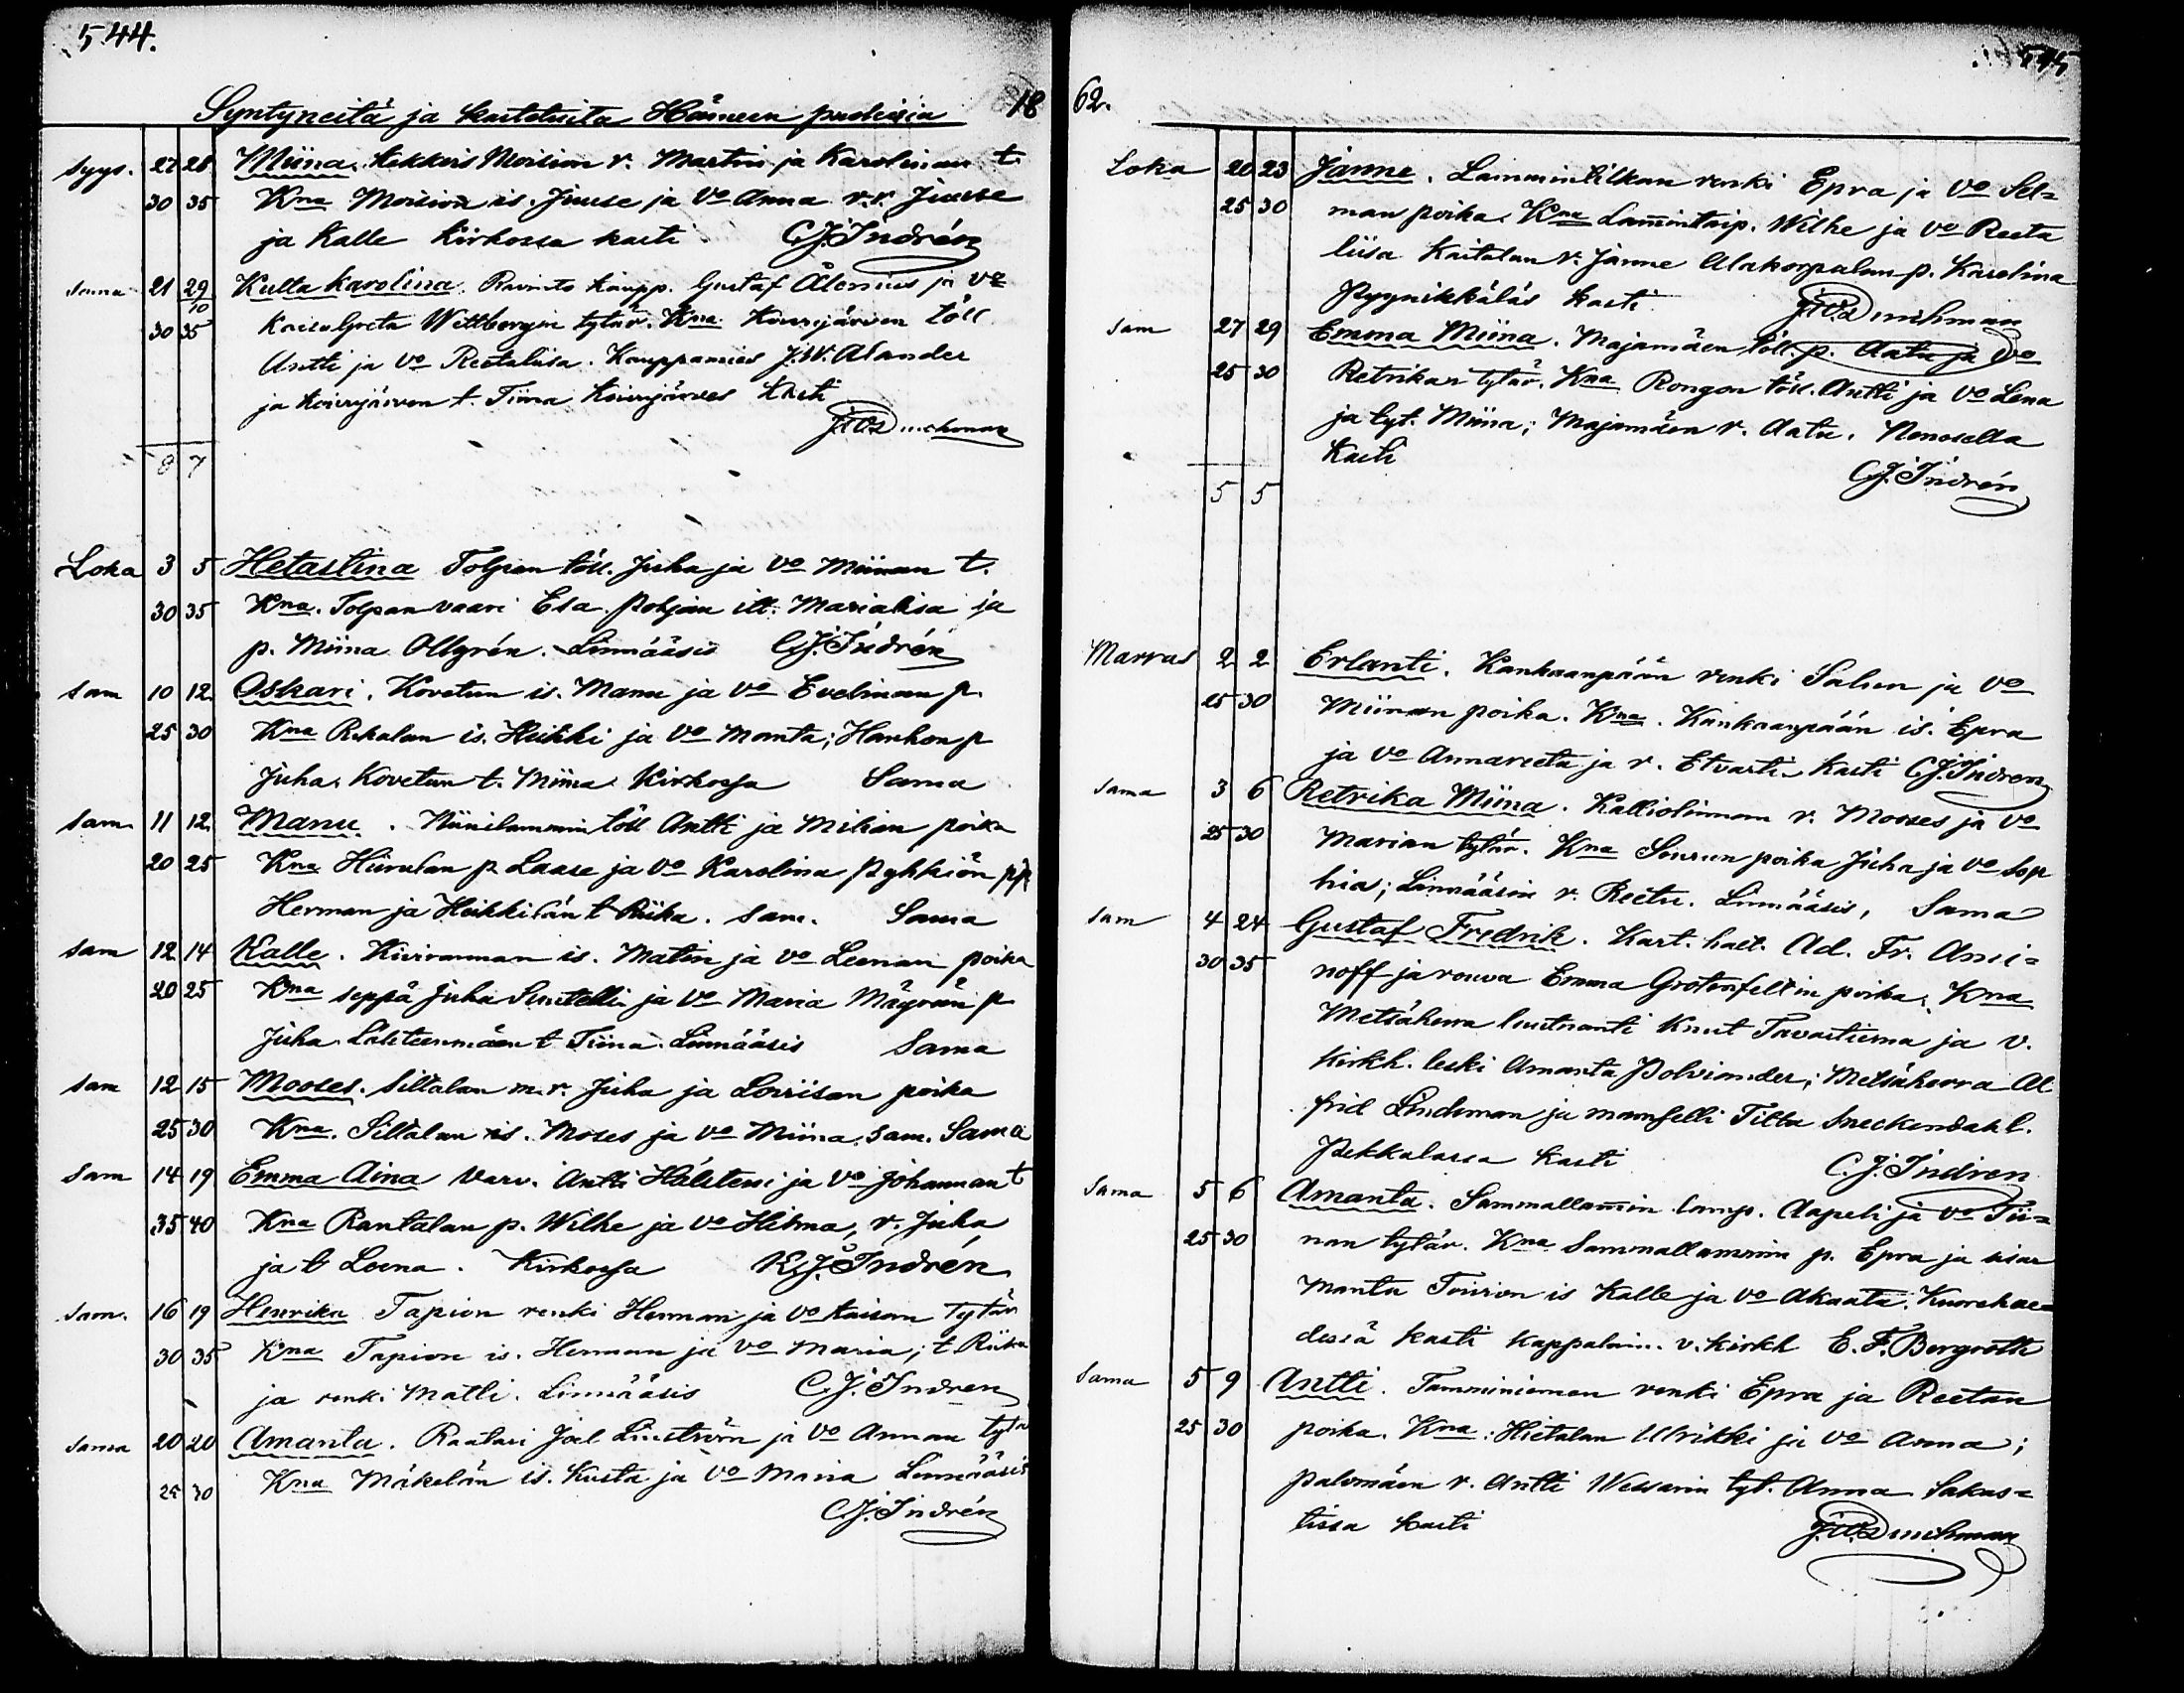 544.
Syntyneitä ja kastetuita Hämeen puolisia 18
Syys. 27 28 Miina. kekkois Moision r. Martin ja Karolinan t.
30 35 Kna Moision is. Juuse ja Vo Anna r.r. Juuse
ja Kalle Kirkossa kasti C.J. Indrén
Sama 21 29/10 Kulla Karolina. Ravinto kaupp. Gustaf Alenius ja Vo
30 35 Kaisa Greta Wettbergin tytär. Kna Kourijärven töll
Antti ja Vo Reetaliisa. Kauppamies J.W. Alander
ja Kourijärven t. Tiina Kourijärves kasti
8 7
Loka 3 5 Hetastina Tolpan töll. Juha ja Vo Miinan t.
30 35 Kna. Tolpan vaari Esa Pohjan itt. Marialisa ja
p. Miina Ollgrén. Linnääsis C.J. Indrén
Sam 10 12. Oskari. Kovetun is. Manu ja Vo Evelinan p.
25 30 Kna Rekolan is. Heikki ja Vo Manta; Hanhon p
Juha, Kovetun t. Miina Kirkossa Sama
Sam. 11 12. Manu. Niinilammin töll Antti ja Milian poika
20 25 Kna Hiirolan p. Laase ja Vo Karolina Pyhkiön pp
Herman ja Heikkilän t Riika. Sam. Sama
Sam 12 14 Kalle. Kivirannan is. Matin ja Vo Leenan poika
20 25 Kna seppä Juha Suutelli ja Vo Maria Mäyrän p
Juha Lähteenmäen t Tiina. Linnääsis Sama
Sam 12 15 Mooses. Siltalan m.r. Juha ja Loviisan poika
25 30 Kna. Siltalan is. Moses ja Vo Miina. Sam. Sama
Sam 14 19 Emma Aina Varv. Antti Hálsteni ja Vo Johannan t
35 40 Kna Rantalan p. Wilhe ja Vo Hilma, r. Juha
ja t Leena. Kirkossa C.J. Indrén
Sam. 16 19 Henrika Tapion renki Herman ja Vo Kaisan Tytär
30 35 Kna Tapion is. Herman ja Vo Maria; t. Riika
ja renki Matti. Linnääsis C.J. Indren
Sama 20 20 Amanta. Raatari Joel Linström ja Vo Annan tytä
25 30 Kna Mäkelän is. Kusta ja Vo Maria Linnääsis
C.J. Indrén
545
62.
Loka 20 23 Janne. Lammintilkan renki Epra ja Vo Sel=
25 30 man poika. Kna Lamintaip. Wilhe ja Vo Reeta
liisa Kaitalan r. Janne Alakorpalan p. Karolina
Pyynikkäläs kasti
Sam 27 29 Emma Miina. Majamäen töll. p. Aatu ja Vo
25 30 Retrikan tytär. Kna Rongon töll. Antti ja Vo Lena
ja tyt. Miina; Majamäen r. Aatu. Nonosella
kasti C.J. Indrén
5 5
Marras 2 2 Erlanti. Kankaanpään renki Salun ja Vo
25 30 Miinan poika. Kna. Kankaanpään is. Epra
ja Vo Annareeta ja r. Etvarti. kasti C.J. Indren
Sama 3 6 Retrika Miina. Kalliolinnan r. Mooses ja Vo
25 30 Marian tytär. Kna Sourun poika Juha ja Vo Sop
hia; Linnääsin r. Reetu. Linnääsis, Sama
Sam 4 24 Gustaf Fredrik. Kart. halt. Ad. Fr. Ami=
30 35 noff ja rouva Emma Grotenfeltin poika. Kna
Metsäherra luutnanti Knut Tavastierna ja v.
Kirkh. leski Amanta Polviander; Metsäherra Al
frid Lindeman ja mamselli Tilta Sneckendahl.
Pekkalassa kasti C.J. Indren
Sama 5 6 Amanta. Sammallamin lamp. Aapeli ja Vo Tii=
25 30 nan tytär. Kna Sammallammin p. Epra ja sisar
Manta Touron is Kalle ja Vo Akaata. Kuorehae=
dessä kasti kappalain. v. kirkh E.F. Bergroth
Sama 5 9 Antti. Tamminiemen renki Epra ja Reetan
25 30 poika. Kna: Hietalan Ulrikki ja Vo Anna;
palomäen r. Antti Wessarin tyt. Anna Sakas=
tissa kasti